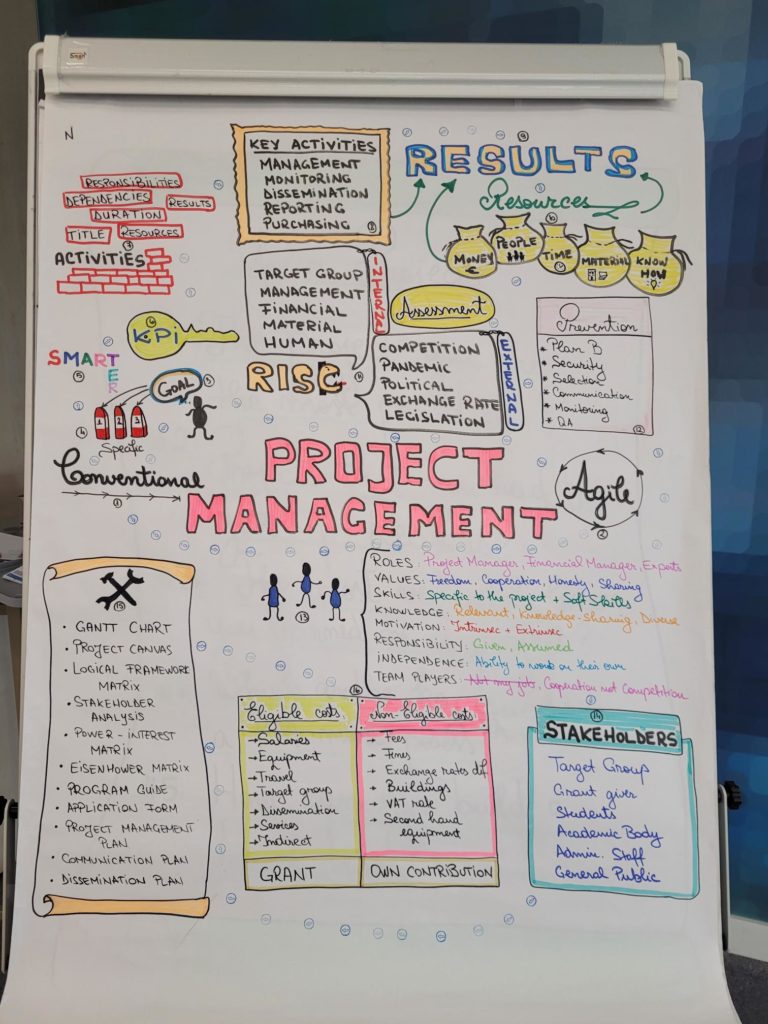 N
KEY ACTIVITIES
MANAGEMENT
MONITORING
DISSEMINATION
REPORTING
PURCHASING
8
9
RESULTS
Resources
10
MONEY
€
PEOPLE
TIME
MATERIAL
KNOW
HOW
RESPONSIBILITIES
DEPENDENCIES
RESULTS
DURATION
TITLE
RESOURCES
7
ACTIVITIES
TARGET GROUP
MANAGEMENT
FINANCIAL
MATERIAL
HUMAN
INTERNAL
Assessment
COMPETITION
PANDEMIC
POLITICAL
EXCHANGE RATE
LEGISLATION
EXTERNAL
RISC
11
Prevention
* Plan B
* Security
* Selection
* Communication
* Monitoring
* QA
12
6
K.Pi
SMARTER
5
GOAL
3
4
1 2 3
Specific
Conventional
1
PROJECT
MANAGEMENT
Agile
2
15
• GANTT CHART
• PROJECT CANVAS
• LOGICAL FRAMEWORK
MATRIX
• STAKEHOLDER
ANALYSIS
• POWER - INTEREST
MATRIX
• EISENHOWER MATRIX
• PROGRAM GUIDE
• APPLICATION FORM
• PROJECT MANAGEMENT
PLAN
• COMMUNICATION PLAN
• DISSEMINATION PLAN
13
ROLES: Project Manager, Financial Manager, Experts
VALUES: Freedom, Cooperation, Honesty, Sharing
SKILLS: Specific to the project + Soft Skills
KNOWLEDGE: Relevant, Knowledge-Sharing, Diverse
MOTIVATION: Intrinsec + Extrinsec
RESPONSIBILITY: Given, Assumed
INDEPENDENCE: Ability to work on their own
TEAM PLAYERS: Not my job, Cooperation not Competition
16
Eligible costs
→ Salaries
→ Equipment
→ Travel
→ Target group
→ Dissemination
→ Services
→ Indirect
GRANT
Non-Eligible costs
→ Fees
→ Fines
→ Exchange rates dif.
→ Buildings
→ VAT rate
→ Second hand
equipment
OWN CONTRIBUTION
14
STAKEHOLDERS
Target Group
Grant giver
Students
Academic Body
Admin. Staff
General Public